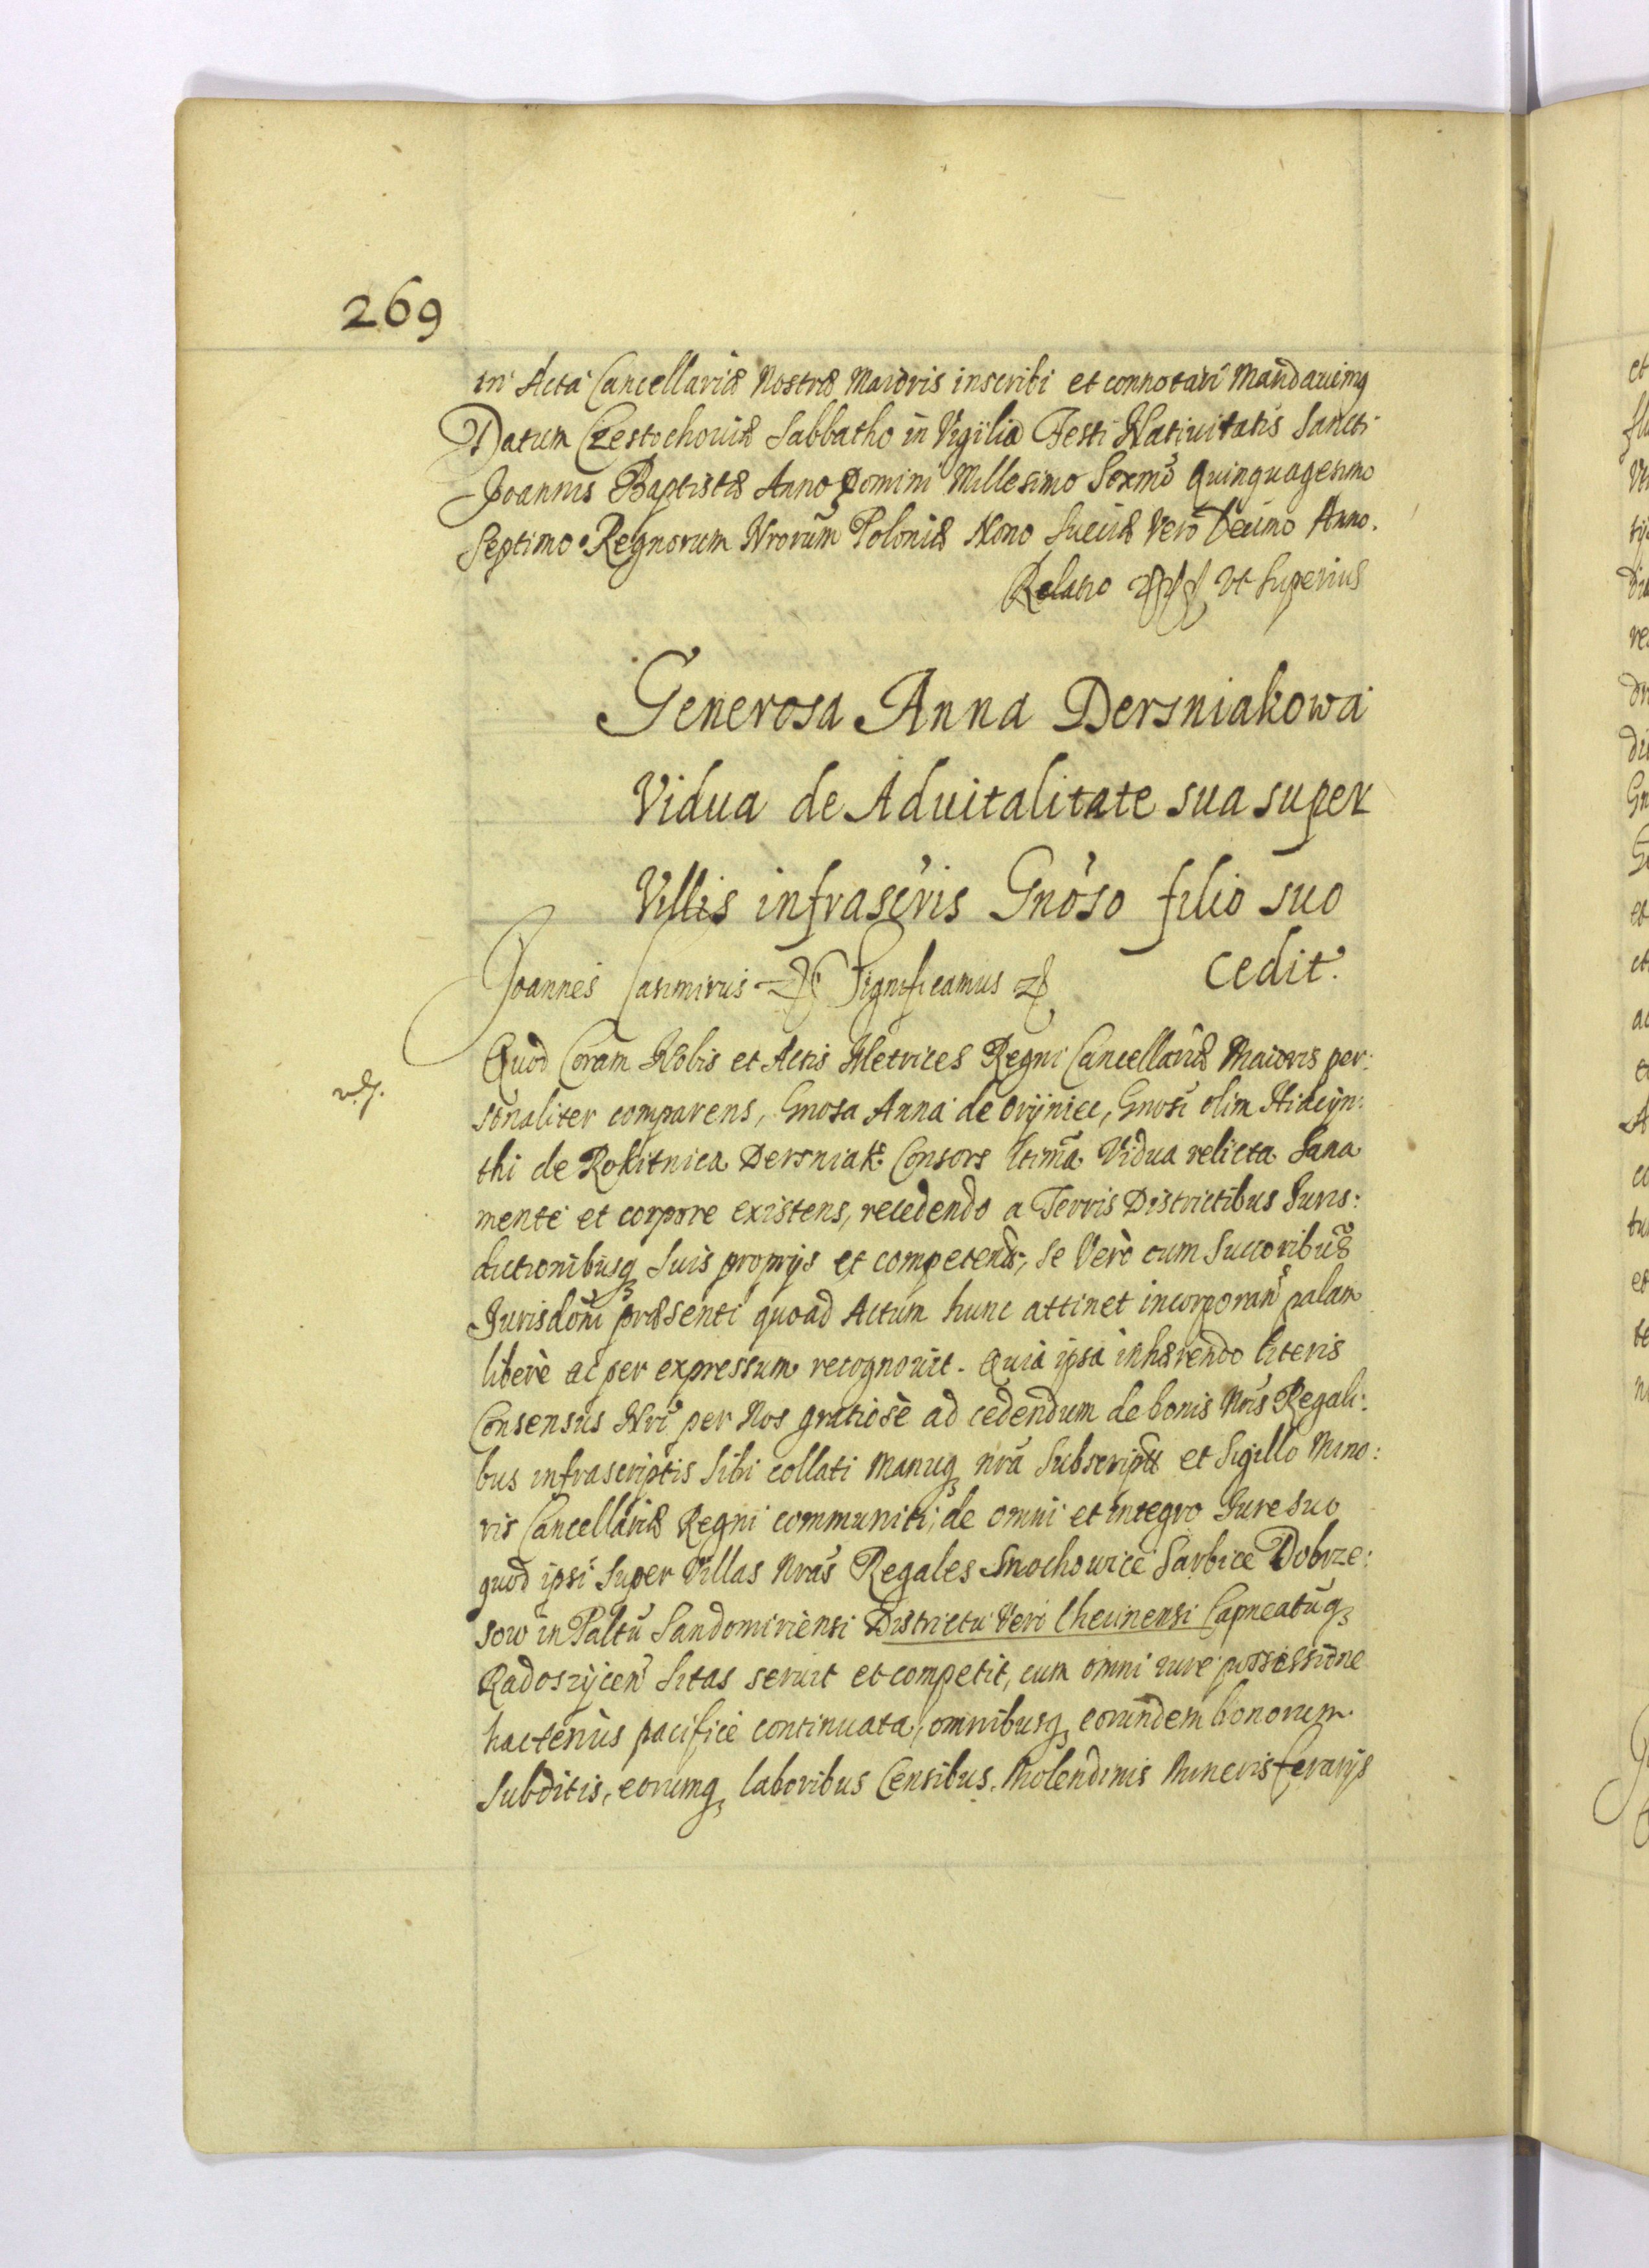 269
in Acta Cancellariæ Nostræ Maioris inscribi et connotari Mandauimq
Datum Czestochouiæ Sabbatho in Vigilia Festi Natiuitatis Sancti
Joannis Baptistæ Anno Domini Millesimo Sexmo Quinquagesimo
Septimo. Regnorum Nrorum Poloniæ Nono Sueciæ Vero Decimo Anno.
Relatio ut Superius
Generosa Anna Dersniakowa
Vidua de Aduitalitate sua super
Villis infrascris Gnoso filio suo
cedit.
Joannes Casimirus Significamus
Quod Coram Nobis et Actis Metrices Regni Cancellariæ Maioris per:
sonaliter comparens, Gnosa Anna de Oryniec, Gnosi olim Hiacyn:
thi de Rokitnica Dersniak Consors ltima Vidua relicta Sana
mente et corpore existens, recedendo a Terris Districtibus Juris:
dictionibusq suis proprijs et competen, se Vero cum Succoribus
Jurisdoni præsenti quoad Actum hunc attinet incorporan palam
libere ac per expressum recognouit. Quia ipsa inhærendo literis
Consensus Nri per Nos gratiose ad cedendum de bonis Nris Regali:
bus infrascriptis Sibi collati Manuq nra Subscripti et Sigillo Mino:
ris Cancellariæ Regni communiti, de omni et integro Jure suo
quod ipsi Super Villas Nras Regales Snochowice Sarbice Dobrze:
sow in Paltu Sandomiriensi Districtu Vero Checinensi Capneatuq
Radoszycen Sitas seruit et competit, cum omni iure possessione
hactenus pacifice continuata, omnibusq eorundem bonorum
Subditis, eorumq laboribus Censibus, Molendinis Mineris ferarijs